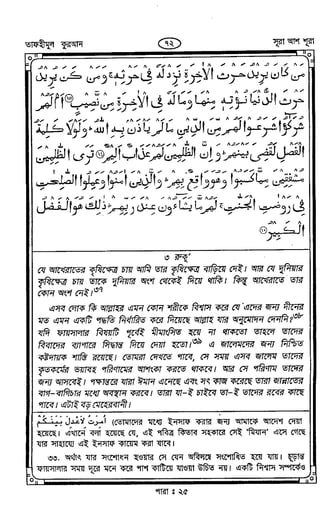 তাফহীমুল কুরআন
৭২
সূরা আশ শূরা
مَنْ كَانَ يُرِيْدُ حَرْثَ الْاٰخِرَةِ نَزِدْ لَهٗ فِيْ حَرْثِهٖ ۚ وَمَنْ كَانَ يُرِيْدُ
حَرْثَ الدُّنْيَا نُؤْتِهٖ مِنْهَا وَمَا لَهٗ فِي الْاٰخِرَةِ مِنْ نَّصِيْبٍ ۝ اَمْ لَهُمْ
شُرَكٰٓؤُا شَرَعُوْا لَهُمْ مِّنَ الدِّيْنِ مَا لَمْ يَاْذَنْۢ بِهِ اللّٰهُ ۚ وَلَوْلَا كَلِمَةُ
الْفَصْلِ لَقُضِيَ بَيْنَهُمْ ۚ وَاِنَّ الظّٰلِمِيْنَ لَهُمْ عَذَابٌ اَلِيْمٌ ۝ تَرَى الظّٰلِمِيْنَ
مُشْفِقِيْنَ مِمَّا كَسَبُوْا وَهُوَ وَاقِعٌۢ بِهِمْ ۚ وَالَّذِيْنَ اٰمَنُوْا وَعَمِلُوا الصّٰلِحٰتِ
فِيْ رَوْضٰتِ الْجَنّٰتِ ۚ لَهُمْ مَّا يَشَآءُوْنَ عِنْدَ رَبِّهِمْ ۚ ذٰلِكَ هُوَ الْفَضْلُ
الْكَبِيْرُ ۝
৩ রুকূ'
যে আখেরাতের কৃষিক্ষেত্র চায় আমি তার কৃষিক্ষেত্র বাড়িয়ে দেই। আর যে দুনিয়ার
কৃষিক্ষেত্র চায় তাকে দুনিয়ার অংশ থেকেই দিয়ে থাকি। কিন্তু আখেরাতে তার
কোন অংশ নেই।৩৭
এসব লোক কি আল্লাহর এমন কোন শরীকে বিশ্বাস করে যে এদের জন্য দীনের
মত এমন একটি পদ্ধতি নির্ধারিত করে দিয়েছে আল্লাহ যার অনুমোদন দেননি?৩৮
যদি ফায়সালার বিষয়টি পূর্বেই মীমাংসিত হয়ে না থাকতো তাহলে তাদের
বিবাদের ব্যাপারে সিদ্ধান্ত দিয়ে দেয়া হতো।৩৯ এ জালেমদের জন্য নিশ্চিত
কষ্টদায়ক শাস্তি রয়েছে। তোমরা দেখতে পাবে, সে সময় এসব জালেম তাদের
কৃতকর্মের ভয়াবহ পরিণামের আশংকা করতে থাকবে। আর সে পরিণাম তাদের
জন্য আসবেই। পক্ষান্তরে যারা ঈমান এনেছে এবং সৎ কাজ করেছে তারা জান্নাতের
বাগ-বাগিচার মধ্যে অবস্থান করবে। তারা যা-ই চাইবে তা-ই তাদের রবের কাছে
পাবে। এটাই বড় মেহেরবানী।
اُمِرْتُ لِاَعْدِلَ بَيْنَكُمُ (তোমাদের মধ্যে ইনসাফ করার জন্য আমাকে আদেশ দেয়া
হয়েছে। এখানে বলা হয়েছে যে, এই পবিত্র কিতাব সহকারে সেই 'মিযান' এসে গেছে
যার সাহায্যে এই ইনসাফ কায়েম করা যাবে।
৩৩. অর্থাৎ যার সংশোধন হওয়ার সে যেন অবিলম্বে সংশোধিত হয়ে যায়। চূড়ান্ত
ফায়সালার সময় দূরে মনে করে পাশ কাটিয়ে যাওয়া উচিত নয়। একটি নিশ্বাস সম্পর্কেও
পারা : ২৫